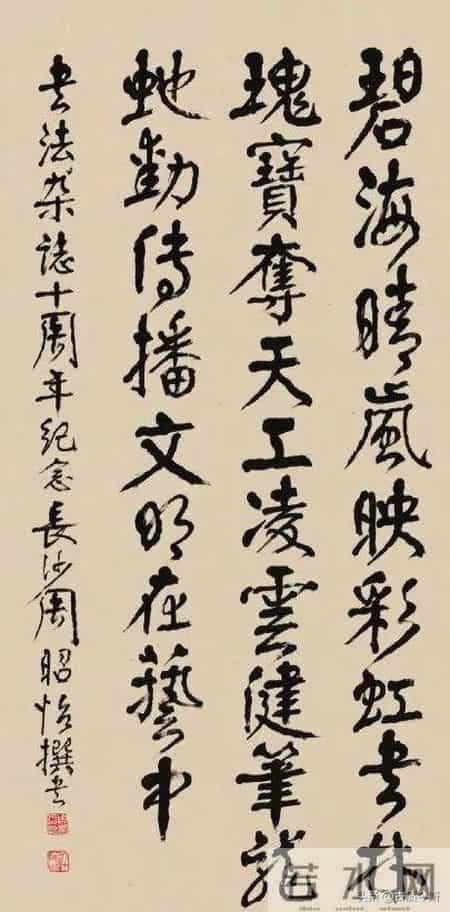 碧海晴嵐映彩虹书林
瑰寶奪天工凌雲健筆龍
虵動传播文明在藝中
书法杂誌十周年纪念長沙周昭怡撰书